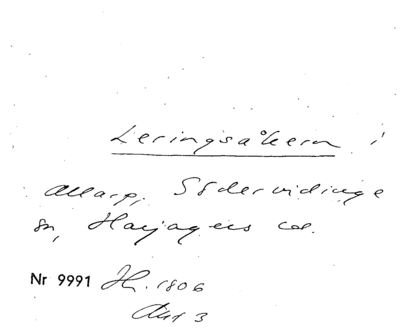 Leringsåkern i
Allarp, Södervidinge
sn, Harjagers hd.
Nr 9991 Hh. 1806
Akt 3